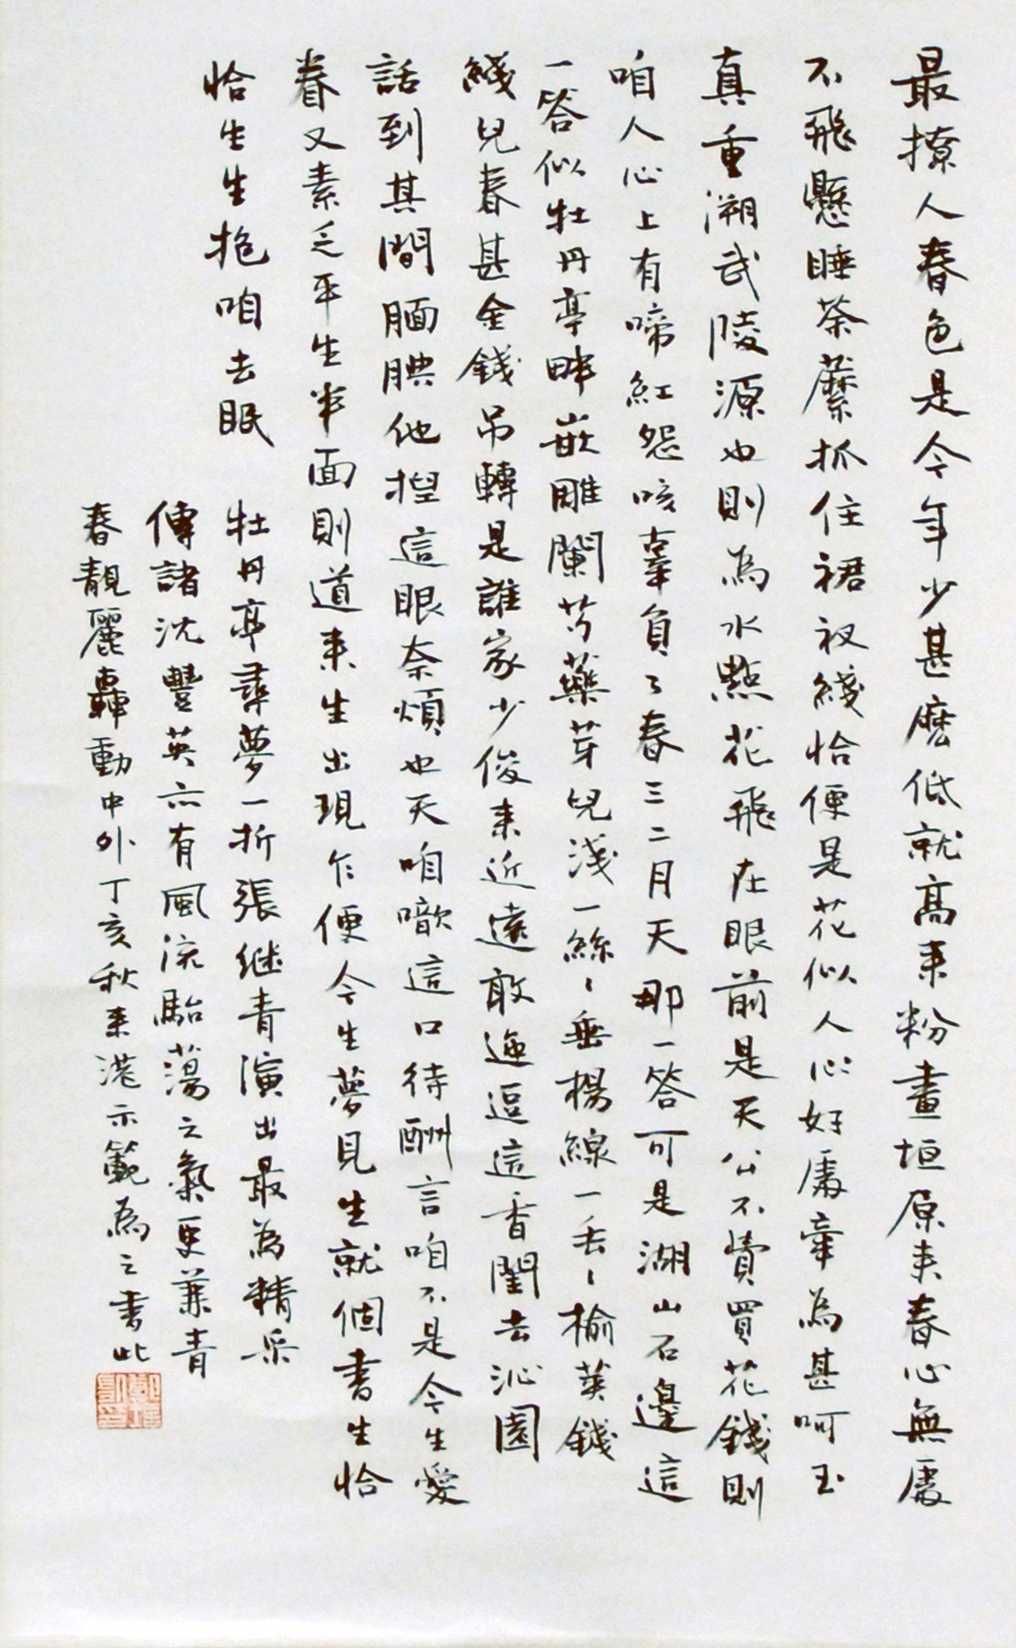 最撩人春色是今年少甚麼低就高來粉畫垣原來春心無處
不飛懸睡荼蘼抓住裙衩綫恰便是花似人心好處牽為甚呵玉
真重溯武陵源也則為水點花飛在眼前是天公不費買花錢則
咱人心上有啼紅怨咳辜負了春三二月天那一答可是湖山石邊這
一答似牡丹亭畔嵌雕闌芍藥芽兒淺一絲丶垂楊線一丟丶榆莢錢
綫兒春甚金錢吊轉是誰家少俊來近遠敢迤逗這香閨去沁園
話到其間腼腆他捏這眼奈煩也天咱噷這口待酬言咱不是今生愛
眷又素乏平生半面則道來生出現乍便今生夢見生就個書生恰
恰生生抱咱去眠
牡丹亭尋夢一折張继青演出最為精采
傳諸沈豐英亦有風流駘蕩之氣更兼青
春靚麗轟動中外丁亥秋來港示範為之書此